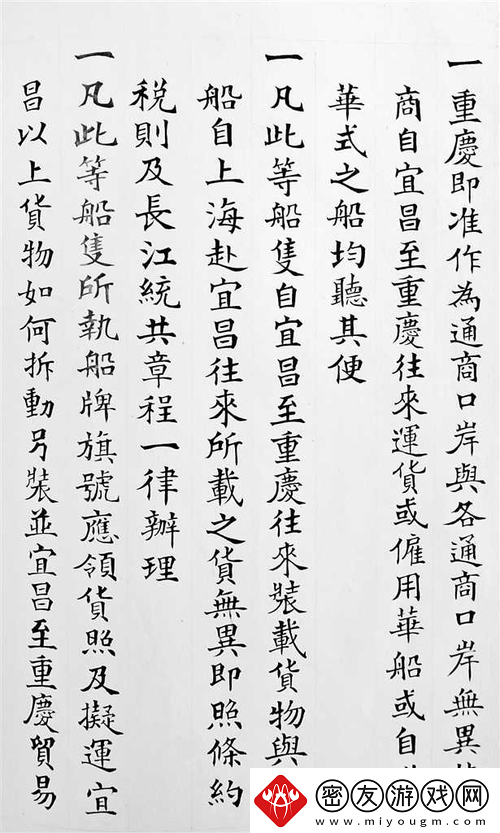 一重慶即准作為通商口岸與各通商口岸無異
商自宜昌至重慶往來運貨或僱用華船或自
華式之船均聽其便
一凡此等船隻自宜昌至重慶往來裝載貨物與
船自上海赴宜昌往來所載之貨無異即照條約
税則及長江統共章程一律辦理
一凡此等船隻所執船牌旗號應領貨照及擬運宜
昌以上貨物如何拆動另裝並宜昌至重慶貿易
密友游戏网
www.miyougm.com